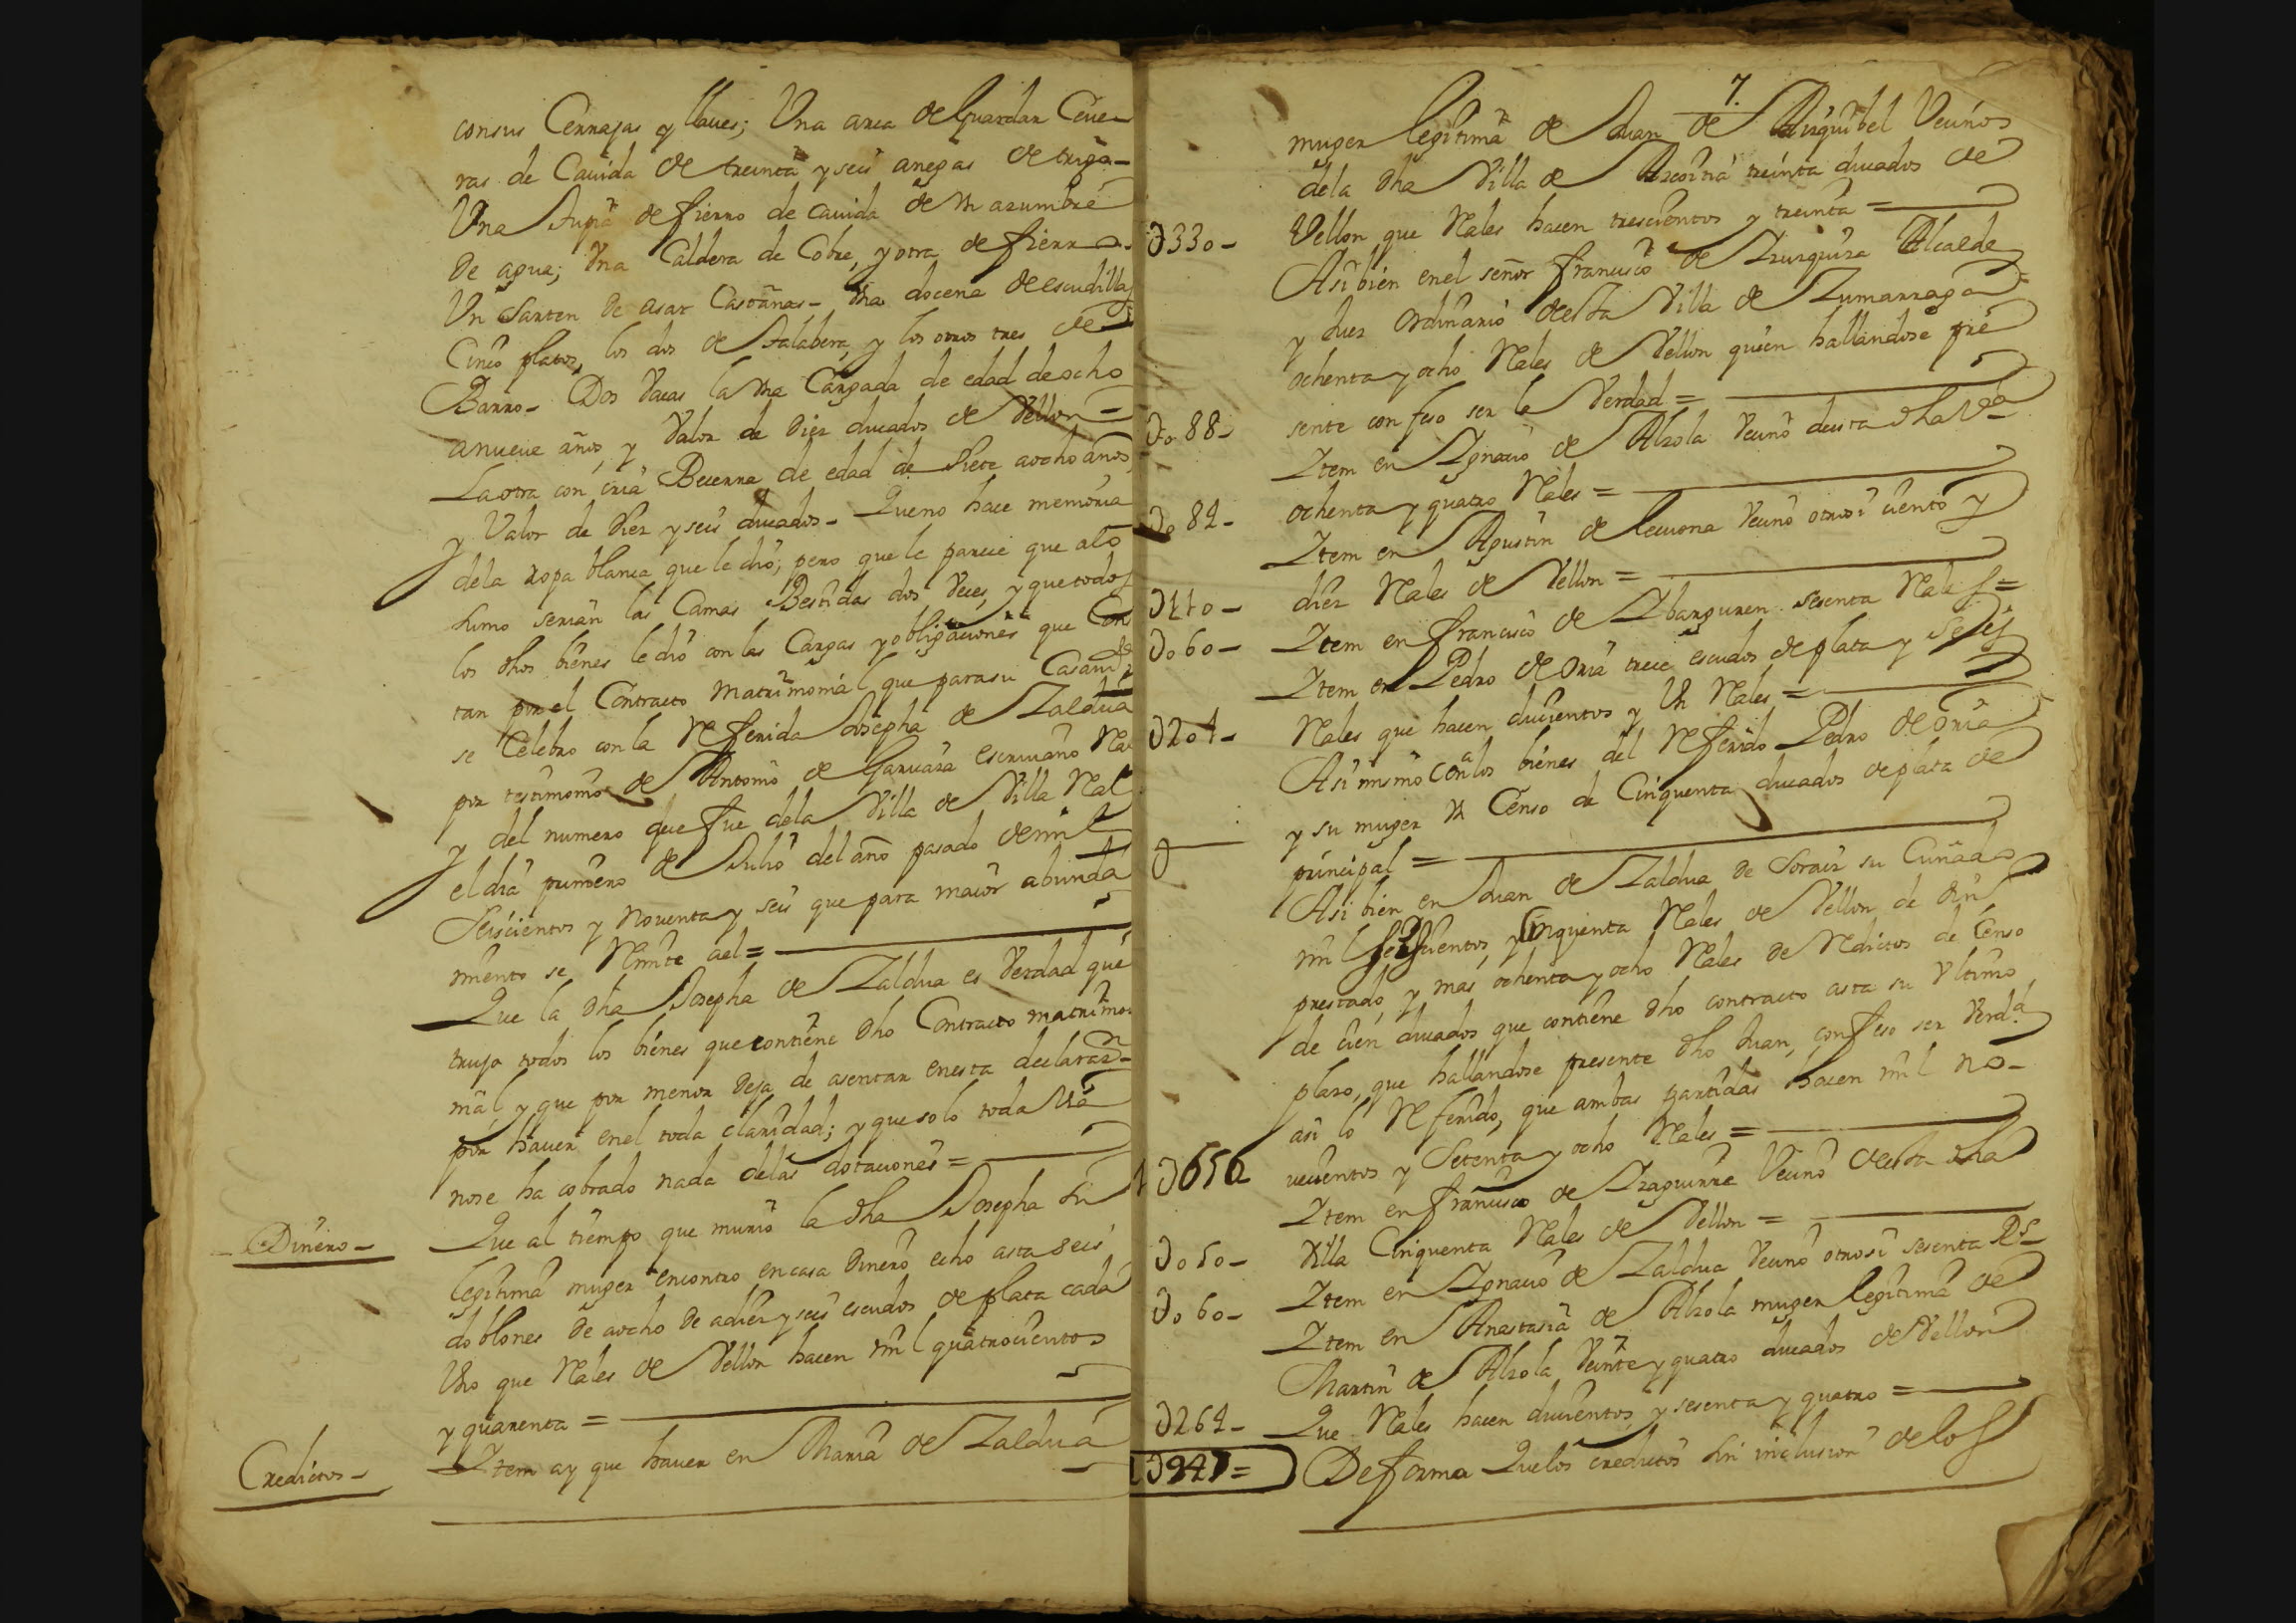 con sus Cerrajas y llaues; Una arca de Guardar Ceue-
ras de Cauida de treinta y seis anegas de trigo-
Una Tupia de fierro de cauida de Vn azumbre
de agua; Vna Caldera de Cobre, y otra de fierro-
Vn Sarten de asar Castañas- Vna docena de escudillas
Cinco platos, los dos de Talabera, y los otros tres de
Barro- Dos Vacas la Vna Cargada de edad de ocho
a nueue años, y Valor de diez ducados de Vellon=
La otra con cria Becerra de edad de siete a ocho años,
y Valor de diez y seis ducados- Que no hace memoria
de la ropa blanca que le dio; pero que le parece que a lo
sumo serian las Camas Bestidas dos Veces, y que todos
los dhos bienes le dio con las Cargas y obligaciones que Cons
tan por el Contracto Matrimonial que para su Casamto
se Celebro con la Referida Josepha de Zaldua
por testimonio de Antonio de Garuara escriuano Rl
y del numero que fue de la Villa de Villa Real
el dia primero de Julio del año pasado de mil
Seiscientos y Nouenta y seis que para maior abunda
miento se Remite a el=
Que la dha Josepha de Zaldua es Verdad que
trujo todos los bienes que contiene dho Contracto matrimo
nial, y que por menor deja de asentar en esta declarazn-
por hauer en el toda claridad; y que solo toda Via
no se ha cobrado nada de las dotaciones=
Dinero-
Que al tiempo que murio la dha Josepha su
legitima muger encontro en casa dinero echo asta seis
doblones de a ocho de a diez y seis escudos de plata cada
Vno que Rales de Vellon hacen mil quatrocientos
y quarenta=
Credictos-
Ytem ay que hauer en Maria de Zaldua
7.
muger legitima de Juan de Aizquibel Vecinos
de la dha Villa de Azcoitia treinta ducados de
Vellon que Rales hacen trescientos y treinta=
D330-
Asi bien en el señor Francisco de Yzurquiza Alcalde
y Juez Ordinario de esta Villa de Zumarraga
ochenta y ocho Rales de Vellon quien hallandose pre
sente confeso ser la Verdad=
Do88-
Ytem en Ygnacio de Alzola Vecino de esta dha Va
ochenta y quatro Rales=
Do84-
Ytem en Agustin de lecuona Vecino otrosi ciento y
diez Rales de Vellon=
D110-
Ytem en Francisco de Ybarguren sesenta Rales=
Do60-
Ytem en Pedro de Oria trece escudos de plata y seis
Rales que hacen ducientos y Vn Rales=
D201-
Asi mismo Contra los bienes del Referido Pedro de Oria
y su muger Vn Censo de Cinquenta ducados de plata de
principal=
D
Asi bien en Juan de Zaldua de Soraiz su Cuñado
mil seiscientos, y Cinquenta Rales de Vellon de em
prestado, y mas ochenta y ocho Rales de Redictos de Censo
de cien ducados que contiene dho contracto asta su Vltimo
plazo, que hallandose presente dho Juan, confeso ser Verdad
asi lo Referido, que ambas partidas hacen mil no-
uecientos y Setenta y ocho Rales=
1D650
Ytem en Francisco de Yzaguirre Vecino de esta dha
Villa Cinquenta Rales de Vellon=
Do50-
Ytem en Ygnacio de Zaldua Vecino otrosi sesenta Rs-
Do60-
Ytem en Anastasia de Alzola muger legitima de
Martin de Alzola Veinte y quatro ducados de Vellon
Que Rales hacen ducientos, y sesenta y quatro=
D264-
D947=
De forma Que los credictos sin inclusion de los